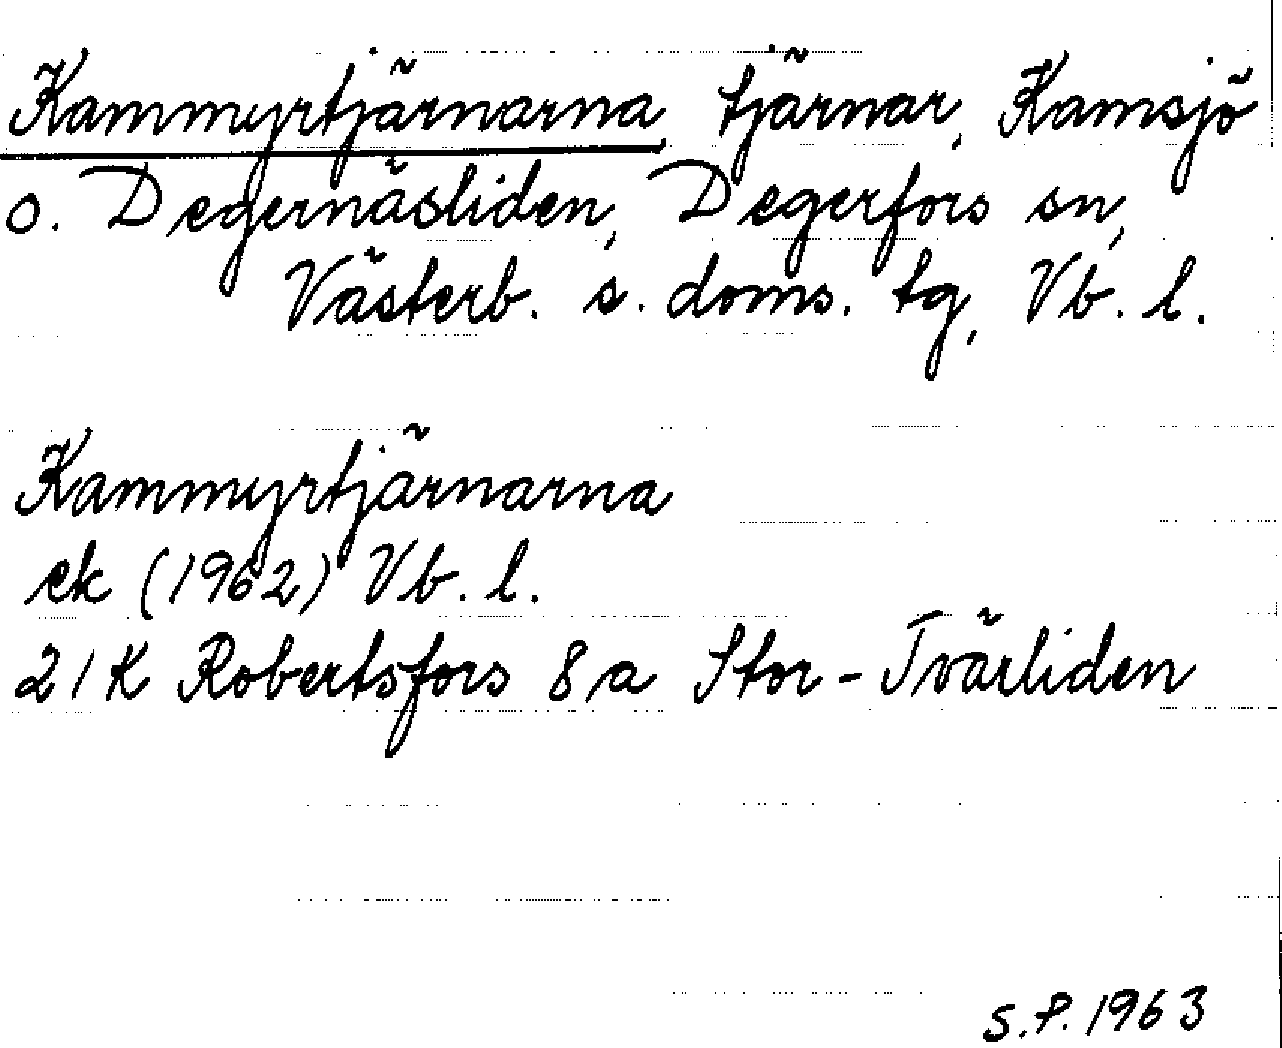 Kammyrtjärnarna, tjärnar, Kamsjö
o. Degernäsliden, Degerfors sn,
Västerb. s. doms. tg, Vb. l.
Kammyrtjärnarna
ek (1962) Vb. l.
21K Robertsfors 8a Stor-Tvärliden
S.P. 1963